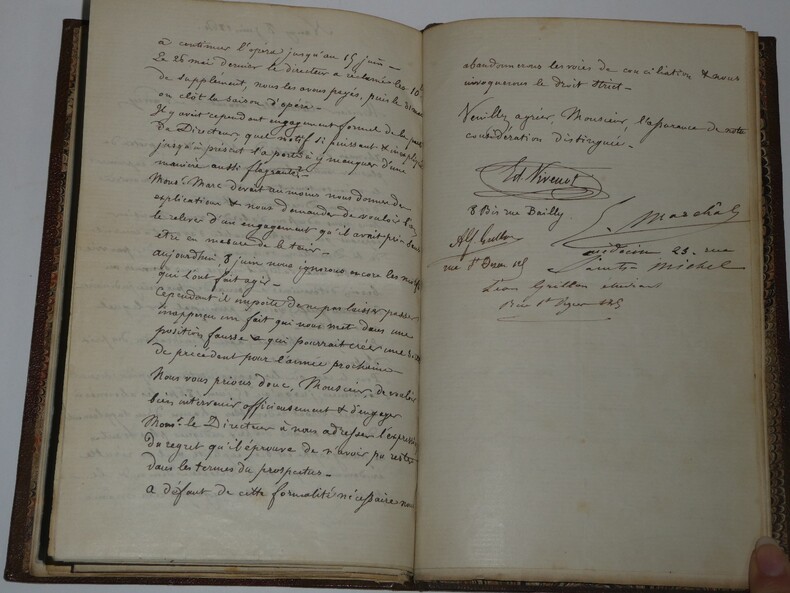 à continuer l'opera jusqu'au 15 juin —
Le 25 mai dernier le directeur a réclamé les 10
de supplément, nous les avons payés, puis le 31 mai
on clôt la saison d'opéra —
Il y avait cependant engagement formel de la part
du Directeur, quel motif si puissant &
jusqu'à présent l'a porté à y manquer d'une
manière aussi flagrante? —
Monsr. Marc devait au moins nous donner des
explications & nous demander de vouloir bien
le relever d'un engagement qu'il avait pris sans
etre en mesure de le tenir —
aujourdhui 8 juin nous ignorons encore les motifs
qui l'ont fait agir —
Cependant il importe de ne pas laisser passer
inapperçu un fait qui nous met dans une
position fausse & qui pourrait créer une
de précédent pour l'année prochaine
Nous vous prions donc, Monsieur, de vouloir
bien intervenir officieusement & d'engager
Monsr. le Directeur à nous adresser l'expression
du regret qu'il éprouve de n'avoir pu rester
dans les termes du prospectus —
a défaut de cette formalité nécessaire nous
abandonnerons les voies de conciliation & nous
invoquerons le droit strict —
Veuillez agréer, Monsieur, l'assurance de notre
considération distinguée —
8 Bis rue Bailly
Marchal
médecin 23. rue
Michel
rue St
Léon étudiant
rue St